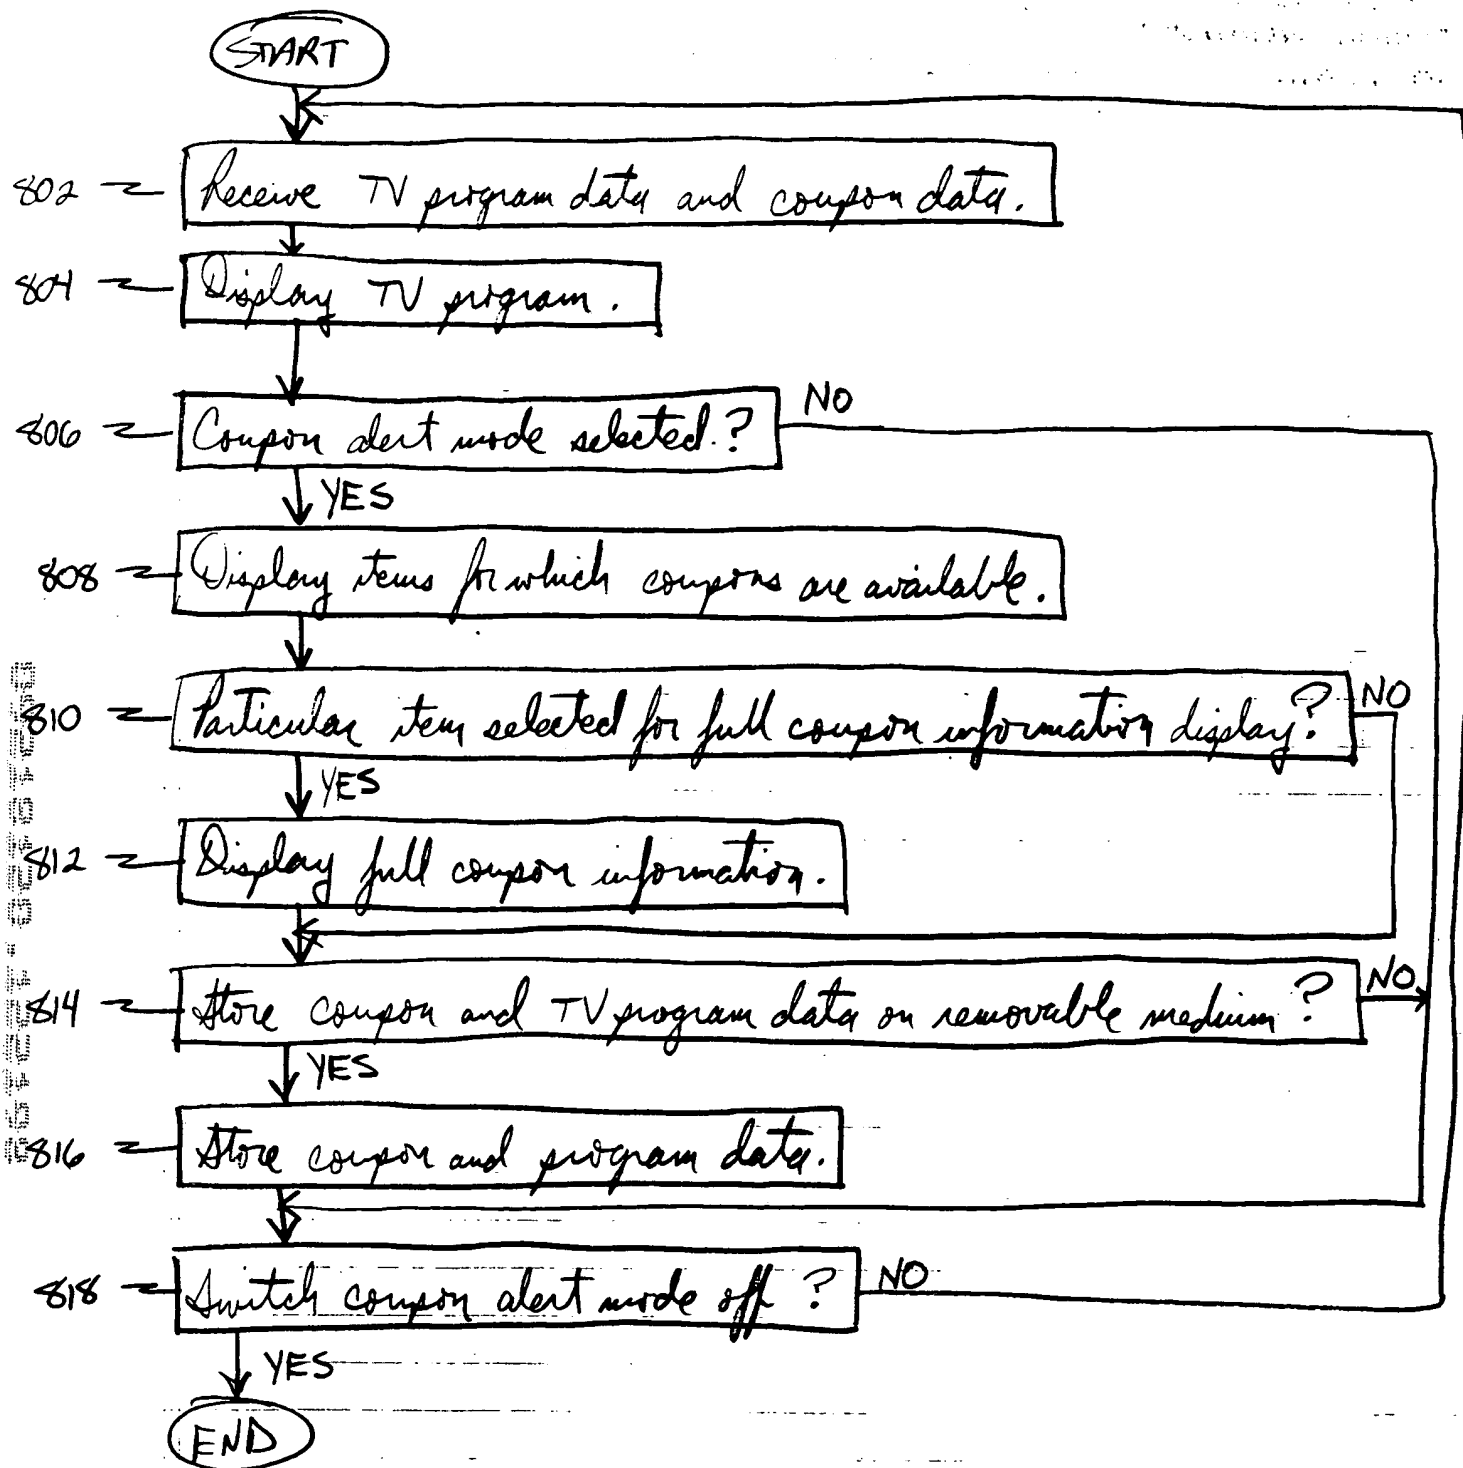 START
802 Receive TV program data and coupon data.
804 Display TV program.
806 Coupon alert mode selected.? NO
YES
808 Display items for which coupons are available.
810 Particular item selected for full coupon information display? NO
YES
812 Display full coupon information.
814 Store coupon and TV program data on removable medium? NO
YES
816 Store coupon and program data.
818 Switch coupon alert mode off? NO
YES
END